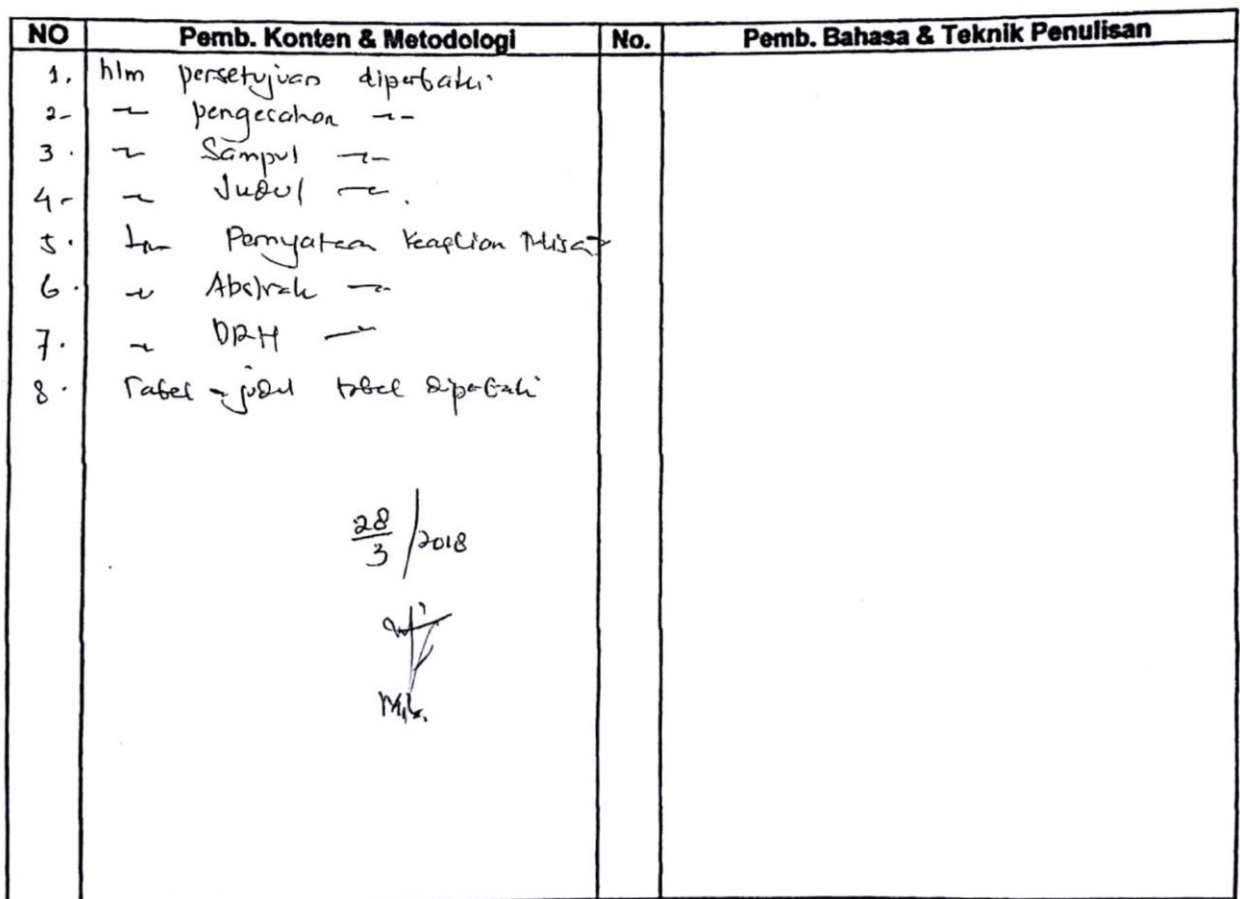 NO Pemb. Konten & Metodologi No. Pemb. Bahasa & Teknik Penulisan
1. hlm persetujuan diperbaiki
2- ~ pengesahan ~-
3. ~ Sampul ~-
4- ~ Judul ~.
5. hlm Pernyataan Keaslian
6. ~ Abstrak ~
7. ~ DRH ~
8. Tabel - judul tabel diperbaiki
28/3/2018